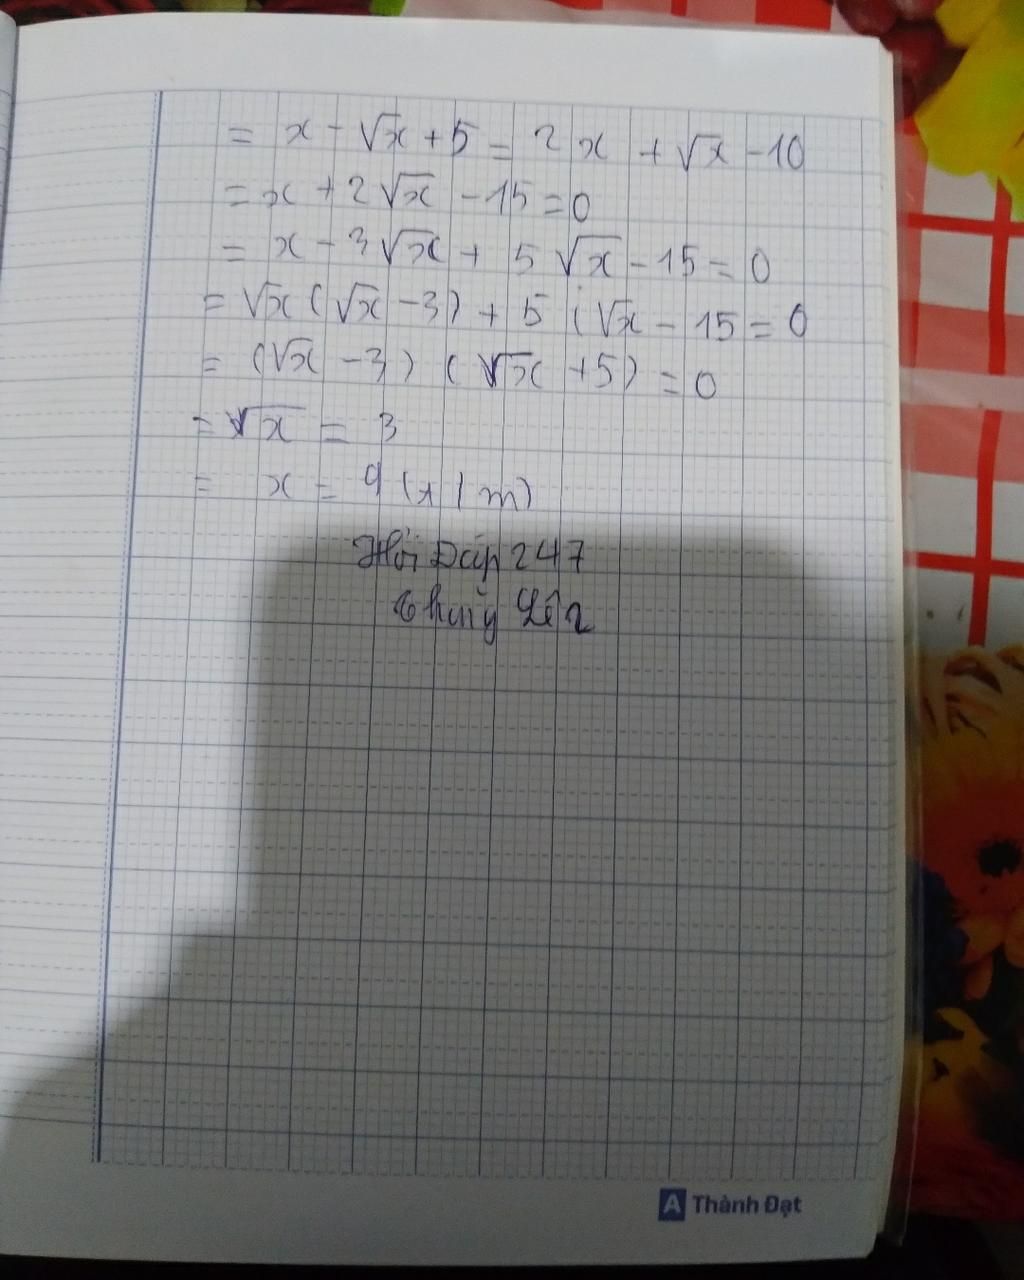 = x - √x + 5 = 2x + √x - 10
= x + 2√x - 15 = 0
= x - 3√x + 5√x - 15 = 0
= √x (√x - 3) + 5 (√x - 15 = 0
= (√x - 3) (√x + 5) = 0
= √x = 3
= x = 9 (t/m)
Hỏi Đáp 247
A Thành Đạt